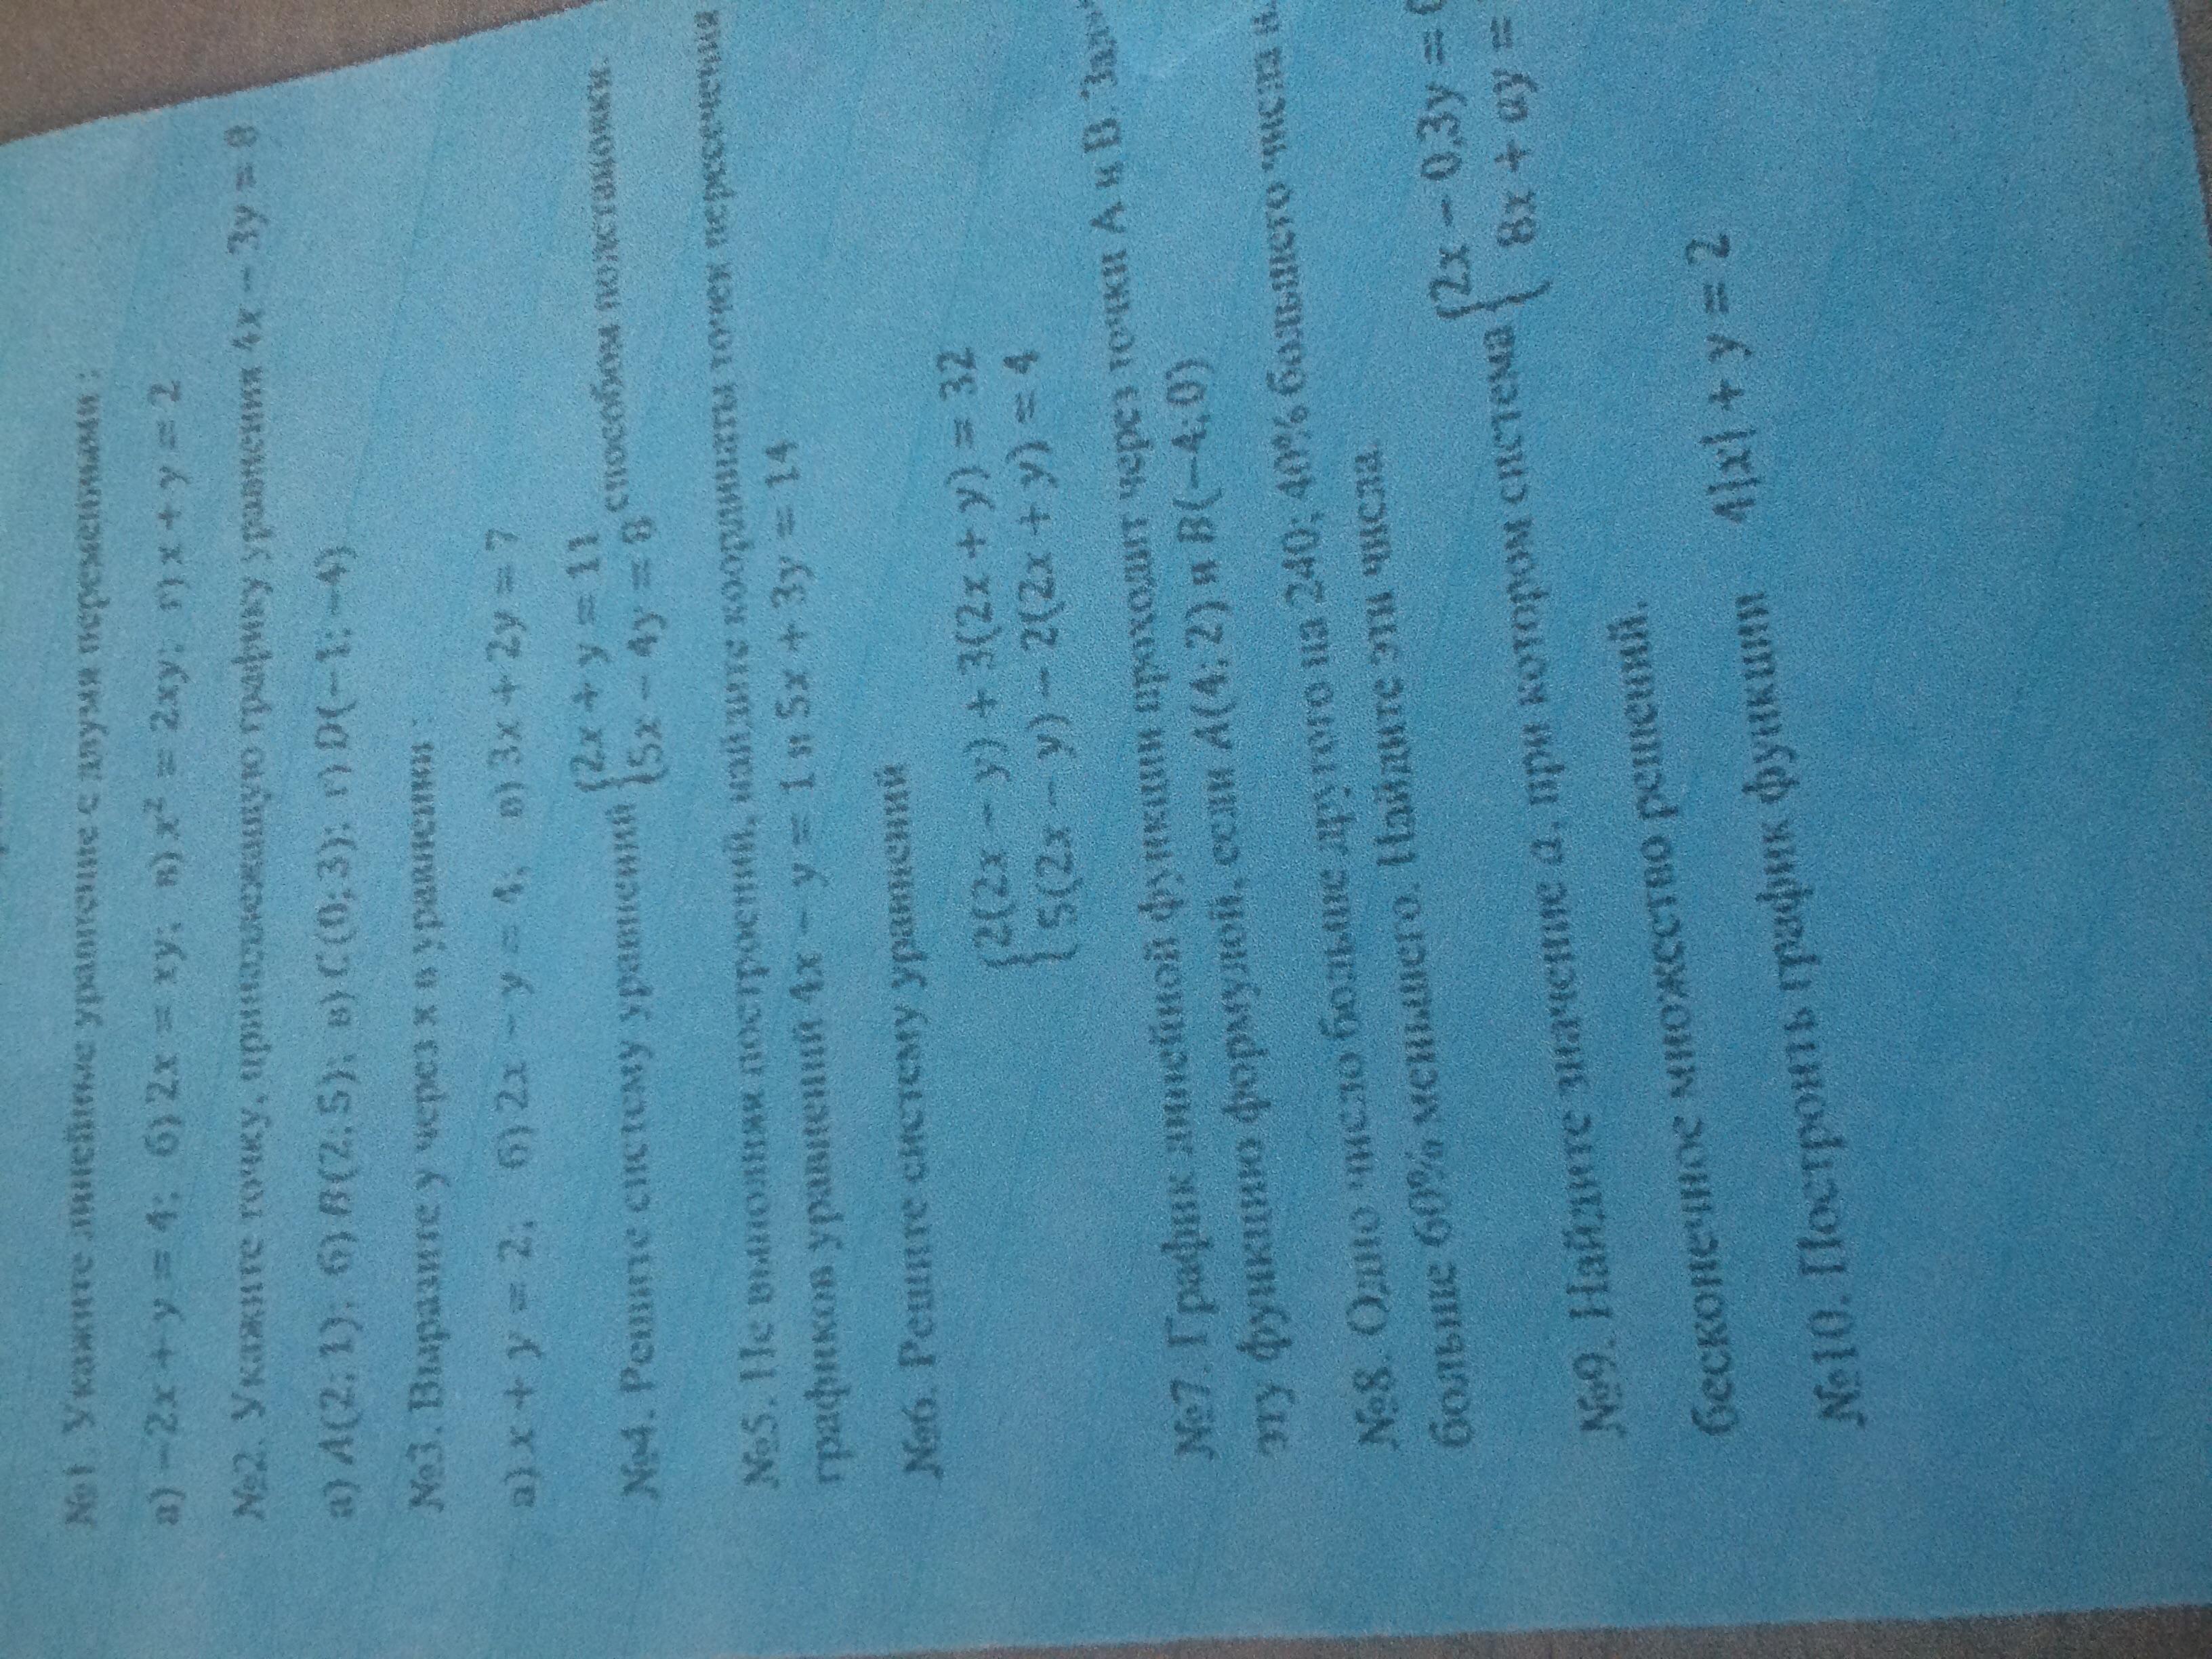 №1. Укажите линейные уравнение с двумя переменными :
а) −2x + y = 4; б) 2x = xy; в) x² = 2xy; г) x + y = 2
№2. Укажите точку, принадлежащую графику уравнения 4x − 3y = 8
а) A(2; 1); б) B(2, 5); в) C(0; 3); г) D(−1; −4)
№3. Выразите у через х в уравнении :
а) x + y = 2; б) 2x − y = 4, в) 3x + 2y = 7
№4. Решите систему уравнений {2x + y = 11
5x − 4y = 8 способом подстановки.
№5. Не выполняя построений, найдите координаты точек пересечения
графиков уравнений 4x − y = 1 и 5x + 3y = 14
№6. Решите систему уравнений
{2(2x − y) + 3(2x + y) = 32
5(2x − y) − 2(2x + y) = 4
№7. График линейной функции проходит через точки А и В.
эту функцию формулой, если A(4; 2) и B(−4;0)
№8. Одно число больше другого на 240; 40% большего числа
больше 60% меньшего. Найдите эти числа.
№9. Найдите значение a, при котором система {2x − 0,3y =
8x + ay =
бесконечное множество решений.
№10. Построить график функции 4|x| + y = 2